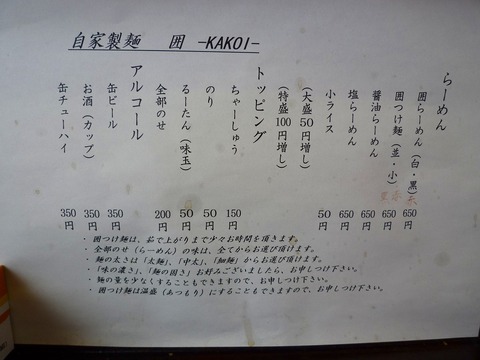 自家製麺 囲 -KAKOI-
らーめん
囲らーめん（白・黒） 650円
囲つけ麺（並・小） 650円
醤油らーめん 650円
塩らーめん 650円
小ライス 50円
（大盛50円増し）
（特盛100円増し）
トッピング
ちゃーしゅう 150円
のり 50円
るーたん（味玉） 50円
全部のせ 200円
アルコール
缶ビール 350円
お酒（カップ） 350円
缶チューハイ 350円
・囲つけ麺は、茹で上がりまで少々お時間を頂きます。
・全部のせ（らーめん）の味は、全てからお選び頂けます。
・麺の太さは「太麺」、「中太」、「細麺」からお選び頂けます。
・「味の濃さ」、「麺の固さ」お好みございましたら、お申しつけ下さい。
・麺の量を少なくすることもできますので、お申しつけ下さい。
・囲つけ麺は温盛（あつもり）にすることもできますので、お申しつけ下さい。